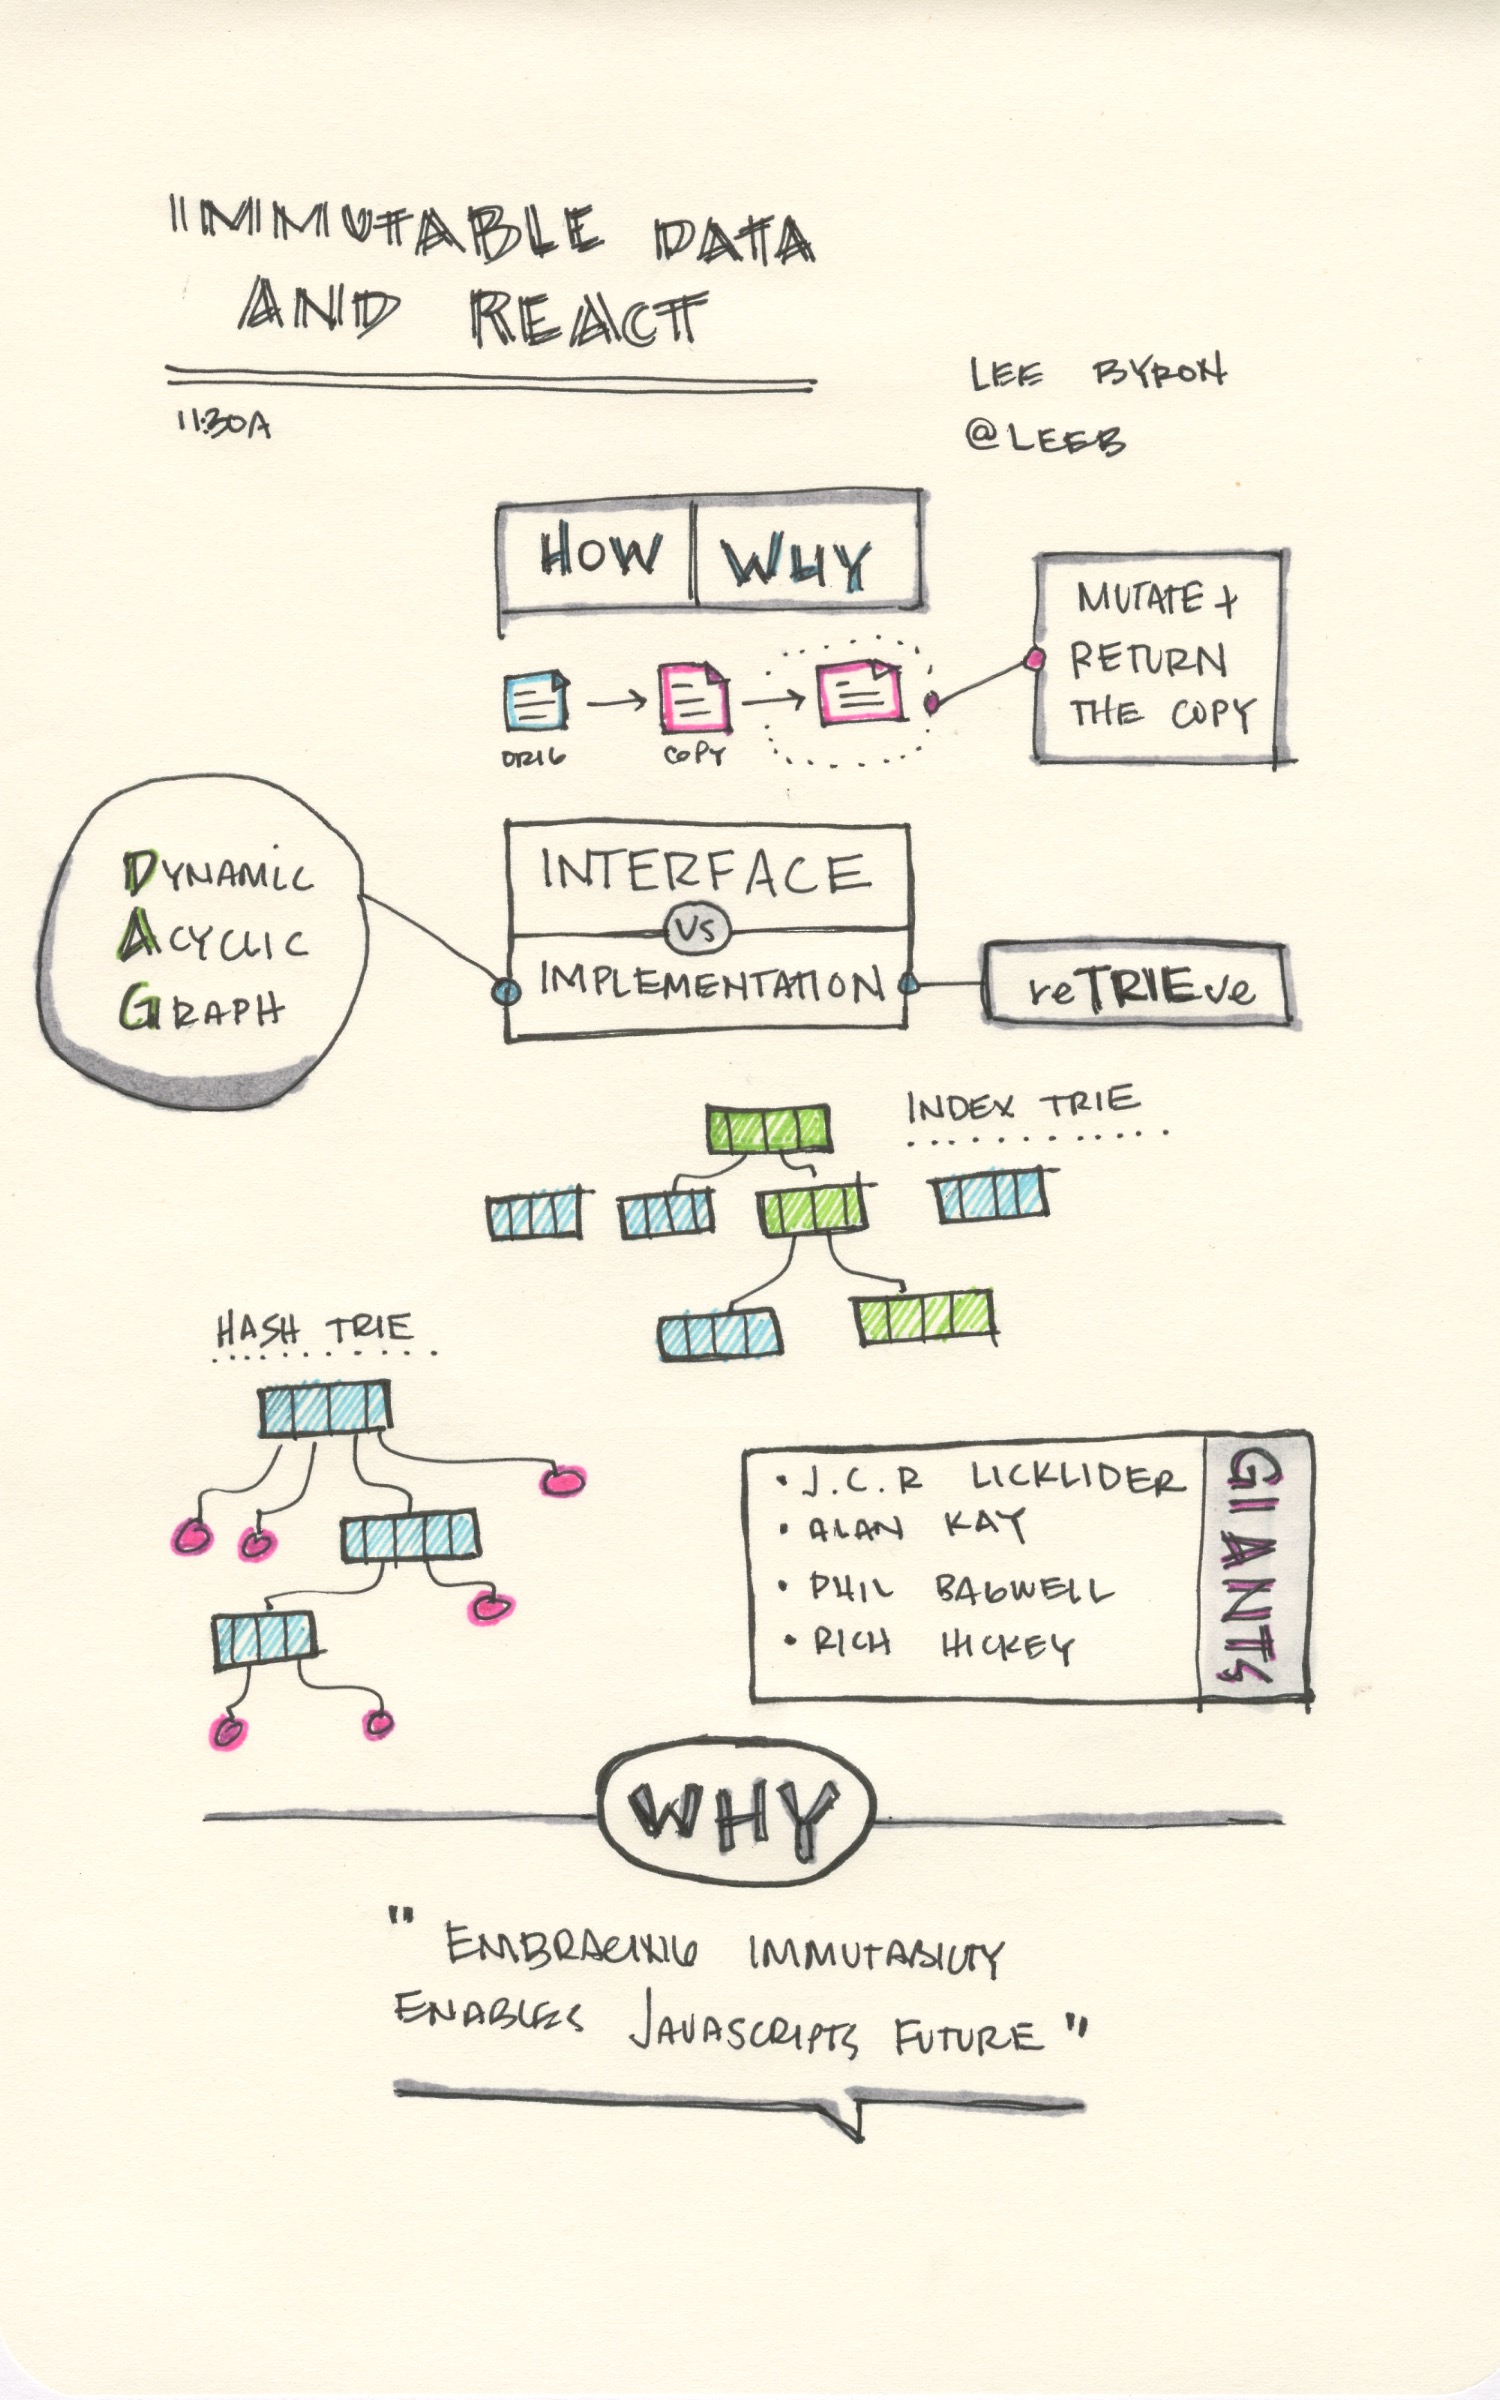 IMMUTABLE DATA
AND REACT
11:30A
LEE BYRON
@LEEB
HOW WHY
MUTATE +
RETURN
THE COPY
ORIG
COPY
DYNAMIC
ACYCLIC
GRAPH
INTERFACE
VS
IMPLEMENTATION
reTRIEve
INDEX TRIE
HASH TRIE
• J.C.R LICKLIDER
• ALAN KAY
• PHIL BAGWELL
• RICH HICKEY
GIANTS
WHY
" EMBRACING IMMUTABILITY
ENABLES JAVASCRIPTS FUTURE "